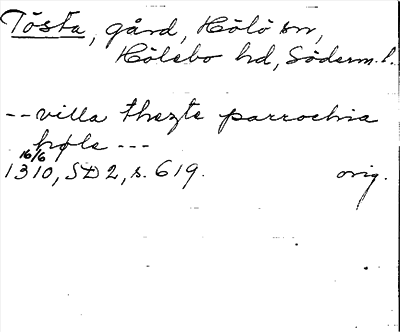 Tösta, gård, Hölö sn,
Hölebo hd, Söderm.l.
--villa thezte parrochia
høle ---
16/6 1310, SD 2, s. 619. orig.